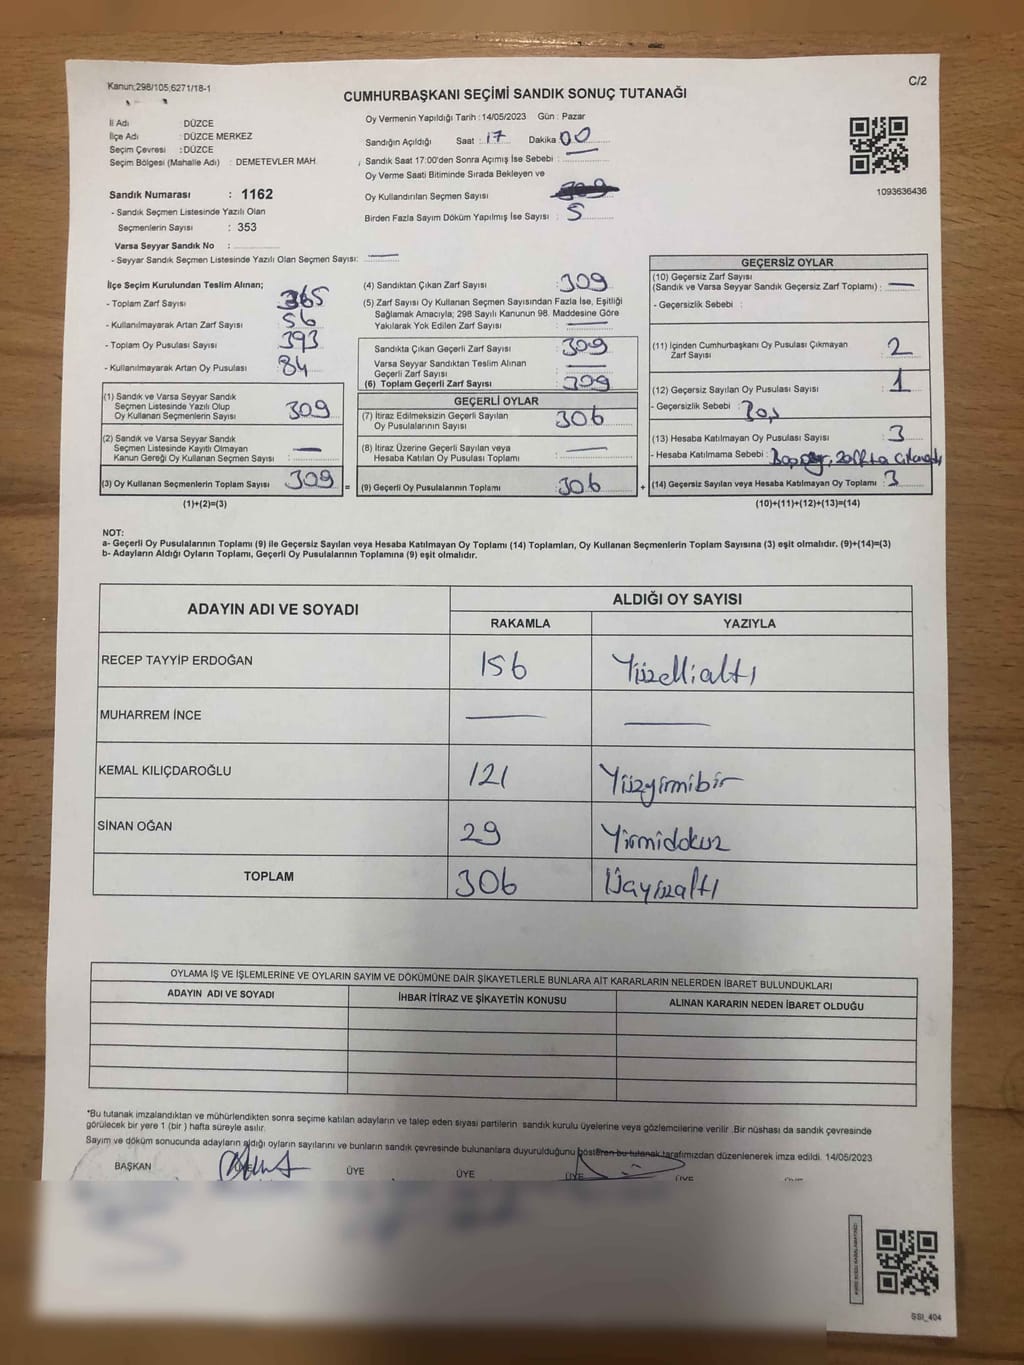 Kanun;298/105,6271/18-1
C/2
CUMHURBAŞKANI SEÇİMİ SANDIK SONUÇ TUTANAĞI
İl Adı : DÜZCE
İlçe Adı : DÜZCE MERKEZ
Seçim Çevresi : DÜZCE
Seçim Bölgesi (Mahalle Adı) : DEMETEVLER MAH.
Sandık Numarası : 1162
- Sandık Seçmen Listesinde Yazılı Olan
Seçmenlerin Sayısı : 353
Varsa Seyyar Sandık No :
- Seyyar Sandık Seçmen Listesinde Yazılı Olan Seçmen Sayısı: —
Oy Vermenin Yapıldığı Tarih : 14/05/2023 Gün : Pazar
Sandığın Açıldığı Saat : 17 Dakika 00
Sandık Saat 17:00'den Sonra Açımış İse Sebebi : —
Oy Verme Saati Bitiminde Sırada Bekleyen ve
Oy Kullandırılan Seçmen Sayısı
Birden Fazla Sayım Döküm Yapılmış İse Sayısı : 5
1093636436
İlçe Seçim Kurulundan Teslim Alınan;
- Toplam Zarf Sayısı : 365
- Kullanılmayarak Artan Zarf Sayısı : 56
- Toplam Oy Pusulası Sayısı : 393
- Kullanılmayarak Artan Oy Pusulası : 84
(1) Sandık ve Varsa Seyyar Sandık
Seçmen Listesinde Yazılı Olup
Oy Kullanan Seçmenlerin Sayısı : 309
(2) Sandık ve Varsa Seyyar Sandık
Seçmen Listesinde Kayıtlı Olmayan
Kanun Gereği Oy Kullanan Seçmen Sayısı : —
(3) Oy Kullanan Seçmenlerin Toplam Sayısı : 309
(1)+(2)=(3)
(4) Sandıktan Çıkan Zarf Sayısı : 309
(5) Zarf Sayısı Oy Kullanan Seçmen Sayısından Fazla İse, Eşitliği
Sağlamak Amacıyla; 298 Sayılı Kanunun 98. Maddesine Göre
Yakılarak Yok Edilen Zarf Sayısı : —
Sandıkta Çıkan Geçerli Zarf Sayısı : 309
Varsa Seyyar Sandıktan Teslim Alınan
Geçerli Zarf Sayısı : —
(6) Toplam Geçerli Zarf Sayısı : 309
GEÇERLİ OYLAR
(7) İtiraz Edilmeksizin Geçerli Sayılan
Oy Pusulalarının Sayısı : 306
(8) İtiraz Üzerine Geçerli Sayılan veya
Hesaba Katılan Oy Pusulası Toplamı : —
= (9) Geçerli Oy Pusulalarının Toplamı : 306
GEÇERSİZ OYLAR
(10) Geçersiz Zarf Sayısı
(Sandık ve Varsa Seyyar Sandık Geçersiz Zarf Toplamı) : —
- Geçersizlik Sebebi :
(11) İçinden Cumhurbaşkanı Oy Pusulası Çıkmayan
Zarf Sayısı : 2
(12) Geçersiz Sayılan Oy Pusulası Sayısı : 1
- Geçersizlik Sebebi : Boş
(13) Hesaba Katılmayan Oy Pusulası Sayısı : 3
- Hesaba Katılmama Sebebi :
+ (14) Geçersiz Sayılan veya Hesaba Katılmayan Oy Toplamı : 3
(10)+(11)+(12)+(13)=(14)
NOT:
a- Geçerli Oy Pusulalarının Toplamı (9) ile Geçersiz Sayılan veya Hesaba Katılmayan Oy Toplamı (14) Toplamları, Oy Kullanan Seçmenlerin Toplam Sayısına (3) eşit olmalıdır. (9)+(14)=(3)
b- Adayların Aldığı Oyların Toplamı, Geçerli Oy Pusulalarının Toplamına (9) eşit olmalıdır.
ADAYIN ADI VE SOYADI
ALDIĞI OY SAYISI
RAKAMLA YAZIYLA
RECEP TAYYİP ERDOĞAN 156 Yüzelli altı
MUHARREM İNCE — —
KEMAL KILIÇDAROĞLU 121 Yüzyirmibir
SİNAN OĞAN 29 Yirmidokuz
TOPLAM 306 Üçyüzaltı
OYLAMA İŞ VE İŞLEMLERİNE VE OYLARIN SAYIM VE DÖKÜMÜNE DAİR ŞİKAYETLERLE BUNLARA AİT KARARLARIN NELERDEN İBARET BULUNDUKLARI
ADAYIN ADI VE SOYADI İHBAR İTİRAZ VE ŞİKAYETİN KONUSU ALINAN KARARIN NEDEN İBARET OLDUĞU
*Bu tutanak imzalandıktan ve mühürlendikten sonra seçime katılan adayların ve talep eden siyasi partilerin sandık kurulu üyelerine veya gözlemcilerine verilir .Bir nüshası da sandık çevresinde
görülecek bir yere 1 (bir ) hafta süreyle asılır.
Sayım ve döküm sonucunda adayların aldığı oyların sayılarını ve bunların sandık çevresinde bulunanlara duyurulduğunu gösteren bu tutanak tarafımızdan düzenlenerek imza edildi. 14/05/2023
BAŞKAN ÜYE ÜYE ÜYE ÜYE ÜYE ÜYE
SSI_404